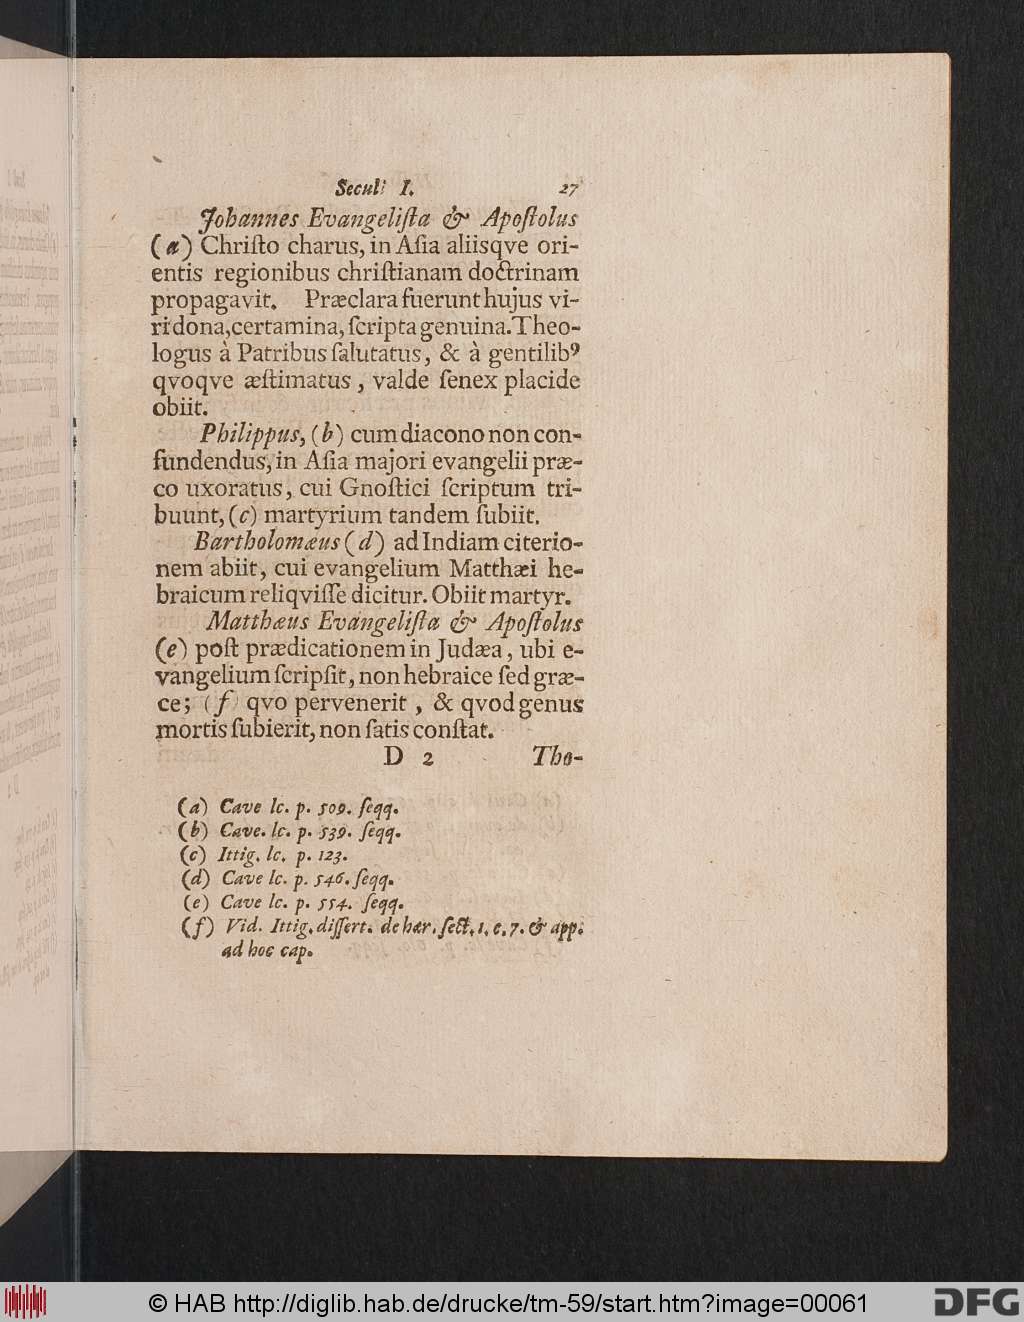 Seculi I. 27
Johannes Evangeliſta & Apoſtolus
(a) Chriſto charus, in Aſia aliisqve ori-
entis regionibus chriſtianam doctrinam
propagavit. Præclara fuerunt hujus vi-
ri dona, certamina, ſcripta genuina. Theo-
logus à Patribus ſalutatus, & à gentilibꝰ
qvoqve æſtimatus, valde ſenex placide
obiit.
Philippus, (b) cum diacono non con-
fundendus, in Aſia majori evangelii præ-
co uxoratus, cui Gnoſtici ſcriptum tri-
buunt, (c) martyrium tandem ſubiit.
Bartholomæus (d) ad Indiam citerio-
nem abiit, cui evangelium Matthæi he-
braicum reliqviſſe dicitur. Obiit martyr.
Matthæus Evangeliſta & Apoſtolus
(e) poſt prædicationem in Judæa, ubi e-
vangelium ſcripſit, non hebraice ſed græ-
ce; (f) qvo pervenerit, & qvod genus
mortis ſubierit, non ſatis conſtat.
D 2 Tho-
(a) Cave lc. p. 509. ſeqq.
(b) Cave. lc. p. 539. ſeqq.
(c) Ittig. lc. p. 123.
(d) Cave lc. p. 546. ſeqq.
(e) Cave lc. p. 554. ſeqq.
(f) Vid. Ittig. diſſert. de hær. ſect. 1. c. 7. & app.
ad hoc cap.
© HAB http://diglib.hab.de/drucke/tm-59/start.htm?image=00061
DFG